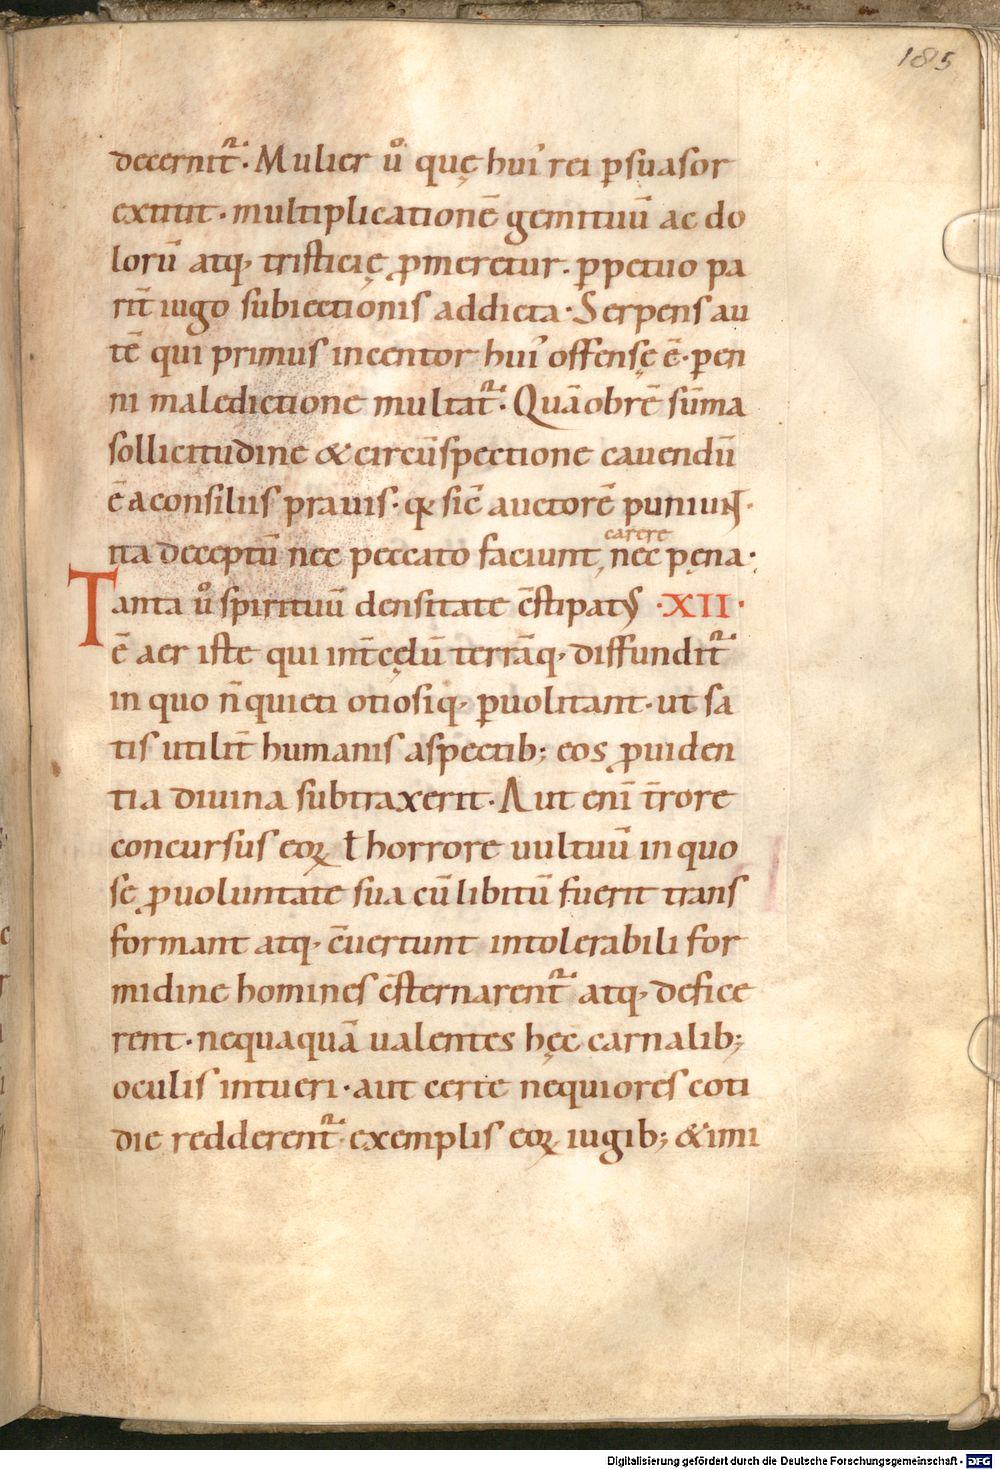 185
decernit᷑. Mulier ů quę huiꝰ rei ꝑsuasor
extitit. multiplicationē gemituū ac do
lorū atq; tristicię ꝓmeretur. ꝑpetuo pa
rit̄ iugo subiectionis addicta. Serpens au
tē qui primus incentor huiꝰ offensę ē. ꝑen
ni maledictione multat᷑. Quāobrē sūma
sollicitudine & circūspectione cauendū
ē a consiliis prauis. qͥ sic̄ auctorē puniunt.
ita deceptū nec peccato faciunt, nec pęna.
carere
Tanta ů spirituū densitate c̄stipatꝰ .XII.
ē aer iste qui int̄ cęlū terrāq; diffundit᷑
in quo n̄ quieti otiosiq; ꝑuolitant. ut sa
tis utilit̄ humanis aspectib; eos ꝓuiden
tia diuina subtraxerit. Aut enī t̄rore
concursus eoꝝ ł horrore uultuū in quo
se ꝓ uoluntate sua cū libitū fuerit trans
formant atq; c̄uertunt intolerabili for
midine homines c̄sternarent᷑ atq; defice
rent. nequaquā ualentes hęc carnalib;
oculis intueri. aut certe nequiores coti
die redderent᷑ exemplis eoꝝ iugib; & imi
Digitalisierung gefördert durch die Deutsche Forschungsgemeinschaft - DFG